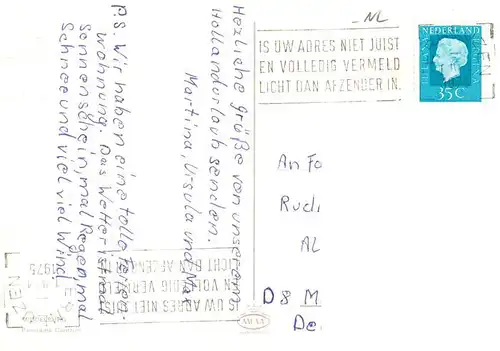 NL
IS UW ADRES NIET JUIST
EN VOLLEDIG VERMELD
LICHT DAN AFZENDER IN.
NEDERLAND
35 C
Herzliche Grüße von unserem
Hollandurlaub senden.
Martina, Ursula und Max
P.S. Wir haben eine tolle Ferien-
wohnung. Das Wetter ist mal
Sonnenschein, mal Regen, mal
Schnee und viel viel Wind
An Fa
Rudi
AL
D 8 M
De
IS UW ADRES NIET JUIST
EN VOLLEDIG VERMELD
LICHT DAN AFZENDER IN
1975
ZEN